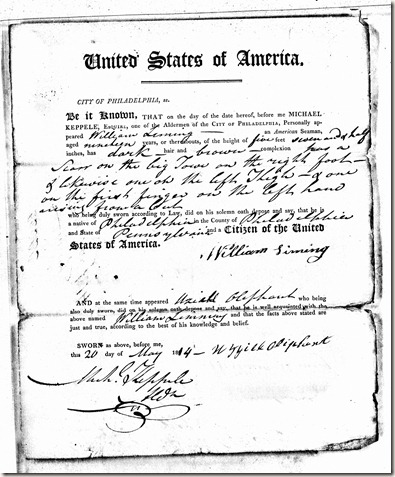 United States of America.
CITY OF PHILADELPHIA, ss.
Be it Known, THAT on the day of the date hereof, before me MICHAEL
KEPPELE, ESQUIRE, one of the Aldermen of the CITY OF PHILADELPHIA, Personally ap-
peared William Liming an American Seaman,
aged nineteen years, or thereabouts, of the height of five feet seven and a half
inches, has dark hair and brown complexion has a
Scar on the big Town on the right foot
& likewise one on the left Thigh & one
on the first finger on the left hand
who being duly sworn according to Law, did on his solemn oath depose and say, that he is
a native of Philadelphia in the County of Philadelphia
and State of Pennsylvania and a Citizen of the United
States of America.
William Liming
AND at the same time appeared Uziah Oliphant who being
also duly sworn, did on his solemn oath depose and say, that he is well acquainted with the
above named William Limming and that the facts above stated are
just and true, according to the best of his knowledge and belief.
SWORN as above, before me,
this 20 day of May 14 Oliphant
Mich. Keppele